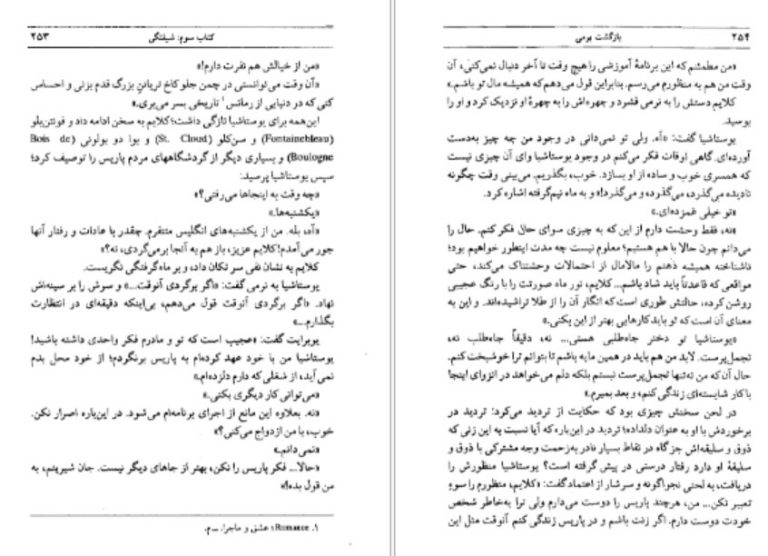 کتاب سوم: شیفتگی ۲۵۳
«من از خیالش هم نفرت دارم!»
«آن وقت می‌توانستی در چمن جلو کاخ تریانن بزرگ قدم بزنی و احساس
کنی که در دنیایی از رمانس۱ تاریخی بسر می‌بری.»
این‌همه برای یوستاشیا تازگی داشت؛ کلایم به سخن ادامه داد و فونتن‌بلو
(Fontainebleau) و سن‌کلو (St. Cloud) و بوا دو بولونی (Bois de
Boulogne) و بسیاری دیگر از گردشگاههای مردم پاریس را توصیف کرد؛
سپس یوستاشیا پرسید:
«چه وقت به اینجاها می‌رفتی؟»
«یکشنبه‌ها.»
«آه، بله. من از یکشنبه‌های انگلیس متنفرم. چقدر با عادات و رفتار آنها
جور می‌آمدم! کلایم عزیز، باز هم به آنجا برمی‌گردی، نه؟»
کلایم به نشان نفی سر تکان داد، و بر ماه‌گرفتگی نگریست.
یوستاشیا به نرمی گفت: «اگر برگردی آنوقت...» و سرش را بر سینه‌اش
نهاد. «اگر برگردی آنوقت قول می‌دهم، بی‌اینکه دقیقه‌ای در انتظارت
بگذارم...»
یوبرایت گفت: «عجیب است که تو و مادرم فکر واحدی داشته باشید!
یوستاشیا من با خود عهد کرده‌ام به پاریس برنگردم؛ از خود محل بدم
نمی‌آید، از شغلی که دارم دلزده‌ام.»
«می‌توانی کار دیگری بکنی.»
«نه. بعلاوه این مانع از اجرای برنامه‌ام می‌شود. در این‌باره اصرار نکن.
خوب، با من ازدواج می‌کنی؟»
«نمی‌دانم.»
«حالا... فکر پاریس را نکن، بهتر از جاهای دیگر نیست. جان شیرینم، به
من قول بده!»
۱. Romance؛ عشق و ماجرا. ــ م.
۲۵۴ بازگشت بومی
«من مطمئنم که این برنامهٔ آموزشی را هیچ وقت تا آخر دنبال نمی‌کنی، آن
وقت من هم به منظورم می‌رسم. بنابراین قول می‌دهم که همیشه مال تو باشم.»
کلایم دستش را به نرمی فشرد و چهره‌اش را به چهرهٔ او نزدیک کرد و او را
بوسید.
یوستاشیا گفت: «آه. ولی تو نمی‌دانی در وجود من چه چیز به‌دست
آورده‌ای. گاهی اوقات فکر می‌کنم در وجود یوستاشیا وای آن چیزی نیست
که همسری خوب و ساده از او بسازد. خوب، بگذریم. می‌بینی وقت چگونه
نادیده می‌گذرد، می‌گذرد، و می‌گذرد!» و به ماه نیم‌گرفته اشاره کرد.
«تو خیلی غمزده‌ای.»
«نه، فقط وحشت دارم از این که به چیزی سوای حال فکر کنم. حال را
می‌دانم چون حالا با هم هستیم؛ معلوم نیست چه مدت اینطور خواهیم بود؛
ناشناخته همیشه ذهنم را مالامال از احتمالات وحشتناک می‌کند، حتی
مواقعی که قاعدتاً باید شاد باشم... کلایم، نور ماه صورتت را با رنگ عجیبی
روشن کرده، حالتش طوری است که انگار آن را از طلا تراشیده‌اند. و این به
معنای آن است که تو باید کارهایی بهتر از این بکنی.»
«یوستاشیا تو دختر جاه‌طلبی هستی... نه، دقیقاً جاه‌طلب نه،
تجمل‌پرست. لابد من هم باید در همین مایه باشم تا بتوانم ترا خوشبخت کنم.
حال آن‌که من نه‌تنها تجمل‌پرست نیستم بلکه دلم می‌خواهد در انزوای اینجا
با کار شایسته‌ای زندگی کنم، و بعد بمیرم.»
در لحن سخنش چیزی بود که حکایت از تردید می‌کرد؛ تردید در
برخوردش با او به عنوان دلداده؛ تردید در این‌باره که آیا نسبت به این زنی که
ذوق و سلیقه‌اش جز گاه در نقاط بسیار نادر به‌زحمت وجه مشترکی با ذوق و
سلیقهٔ او دارد رفتار درستی در پیش گرفته است؟ یوستاشیا منظورش را
دریافت، به لحنی نجواگونه و سرشار از اعتماد گفت: «کلایم، منظورم را سوء
تعبیر نکن... من، هرچند پاریس را دوست می‌دارم ولی ترا به‌خاطر شخص
خودت دوست دارم. اگر زنت باشم و در پاریس زندگی کنم آنوقت مثل این